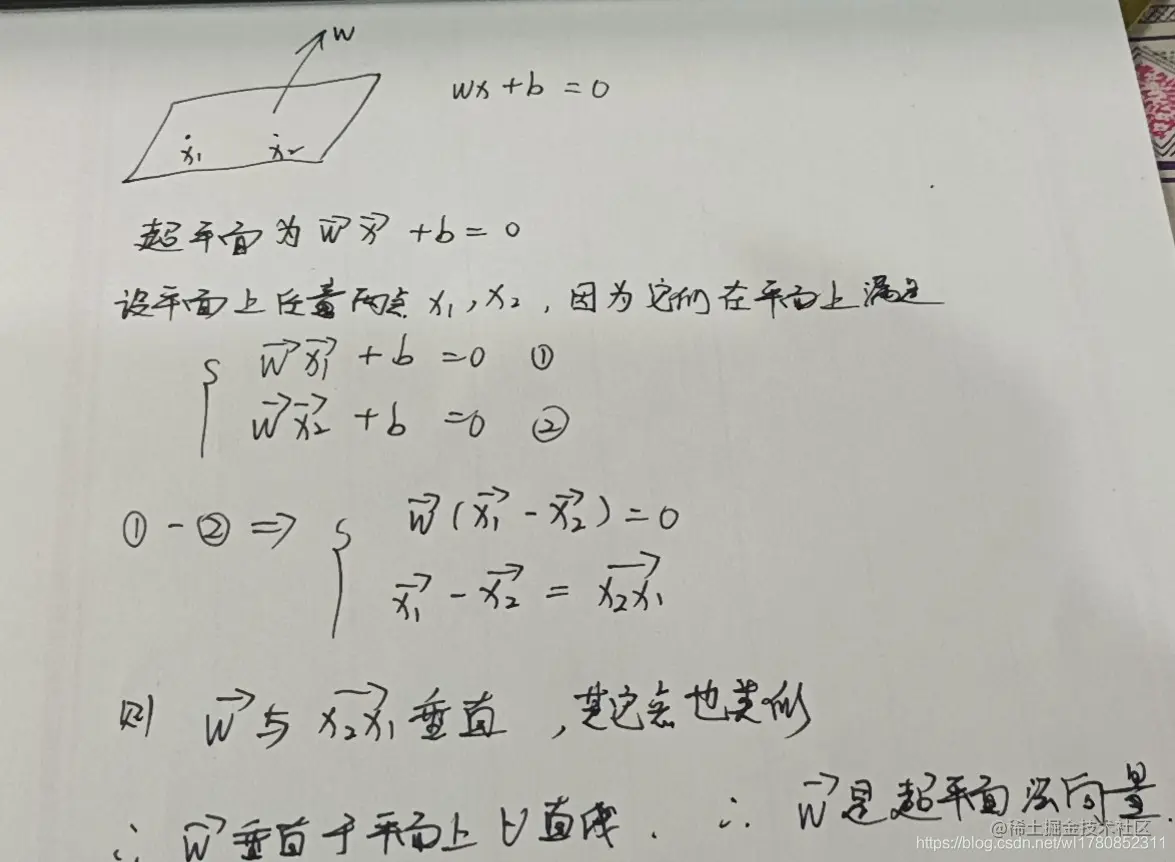 w
wx + b = 0
x₁ x₂
超平面为 w⃗ x⃗ + b = 0
设平面上任意两点 x₁, x₂ , 因为它们在平面上满足
{ w⃗ x₁⃗ + b = 0 ①
w⃗ x₂⃗ + b = 0 ②
① - ② ⇒ { w⃗ (x₁⃗ - x₂⃗) = 0
x₁⃗ - x₂⃗ = x₂x₁⃗
则 w⃗ 与 x₂x₁⃗ 垂直 , 其它点也类似
∴ w⃗ 垂直于平面上 ∀ 直线 . ∴ w⃗ 是超平面法向量
@稀土掘金技术社区
https://blog.csdn.net/wl1780852311